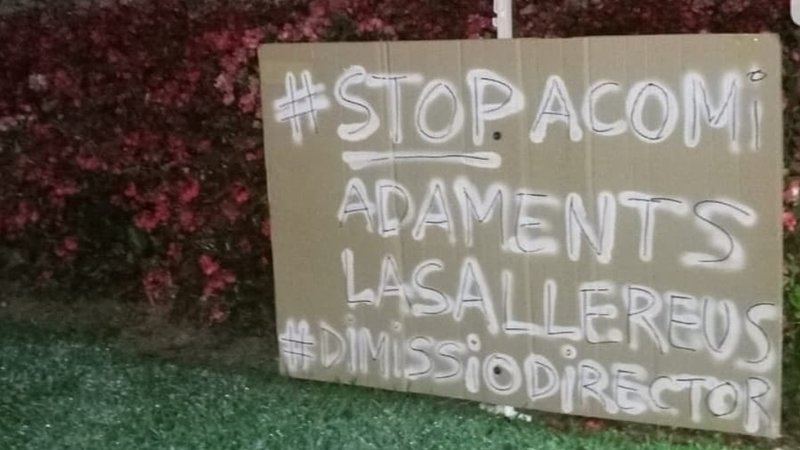 #STOPACOMi
ADAMENTS
LASALLEREUS
#DiMiSSiODiRECTOR